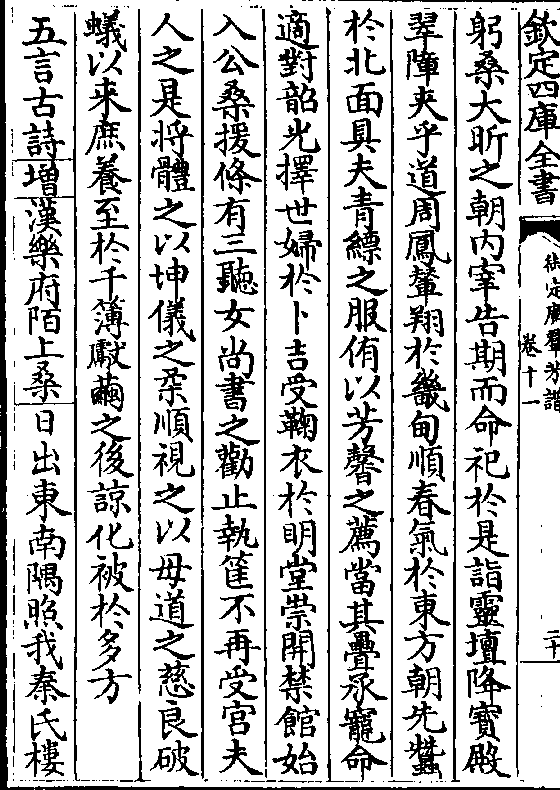 欽定四庫全書
御定廣羣芳譜
卷十一
二十
躬桑大昕之朝内宰告期而命祀於是詣靈壇降寳殿
翠陣夾乎道周鳳輦翔於畿甸順春氣於東方朝先蠶
於北面具夫青縹之服侑以芳馨之薦當其疊承寵命
適對韶光擇世婦於卜吉受鞠衣於明堂崇開禁館始
入公桑援條有三聽女尚書之勸止執筐不再受宮夫
人之是將體之以坤儀之柔順視之以母道之慈良破
蟻以来庶養至於千簿獻繭之後諒化被於多方
五言古詩增漢樂府陌上桑日出東南隅照我秦氏樓